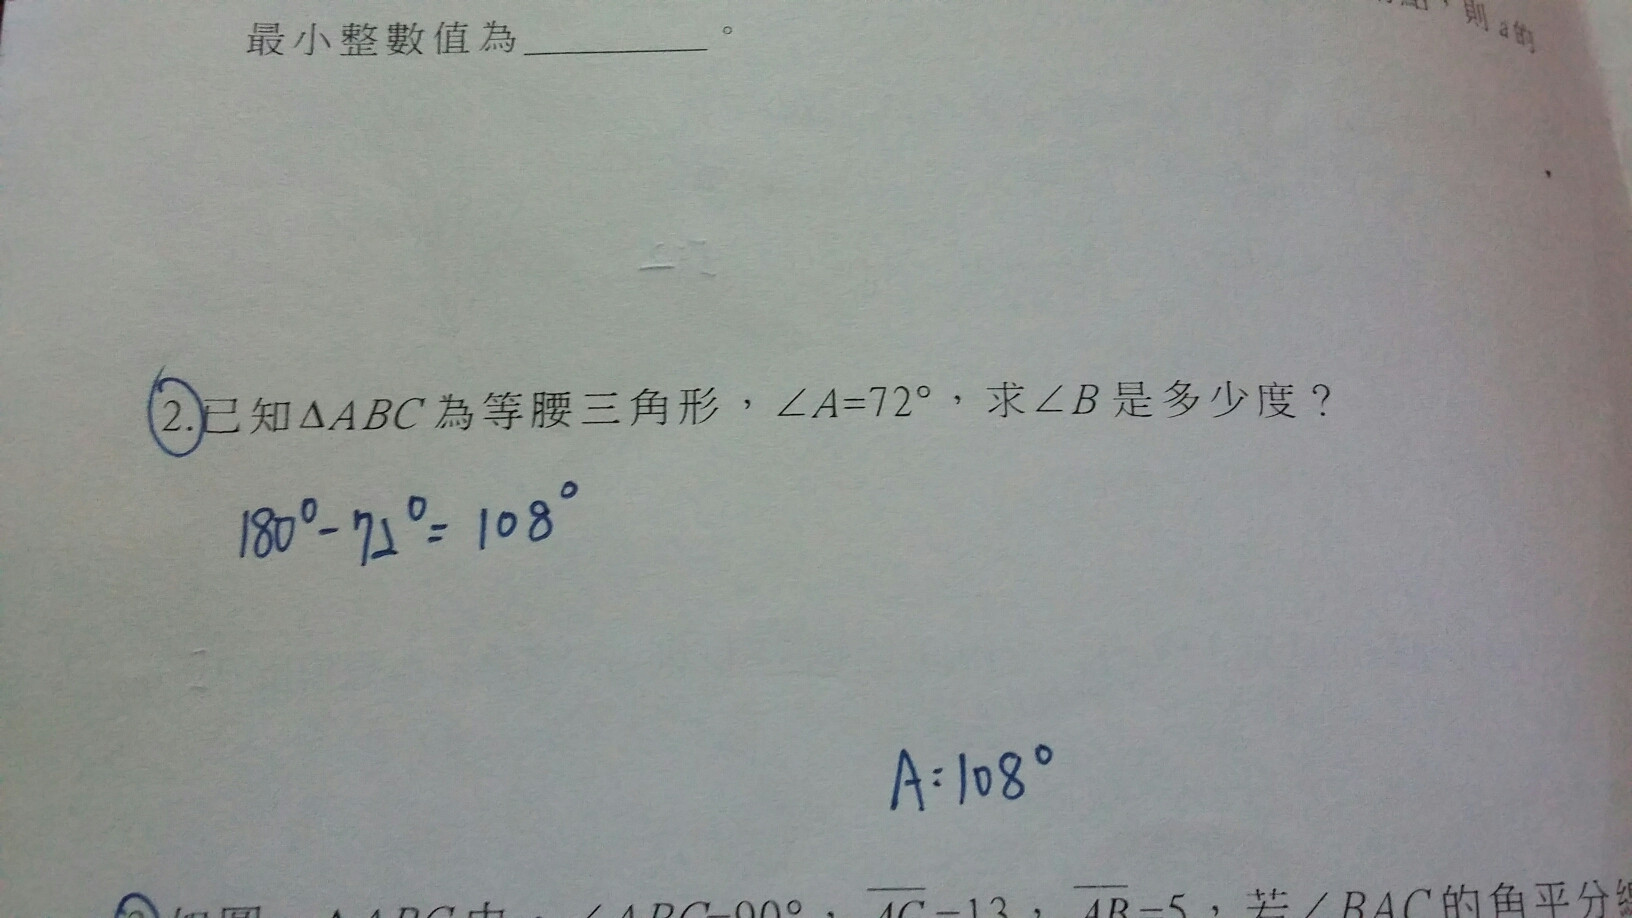 則a的
最小整數值為________。
2.已知ΔABC為等腰三角形，∠A=72°，求∠B是多少度？
180°-72°=108°
A:108°
ΔABC中，∠ABC=90°，AC=13，AB=5，若∠BAC的角平分線